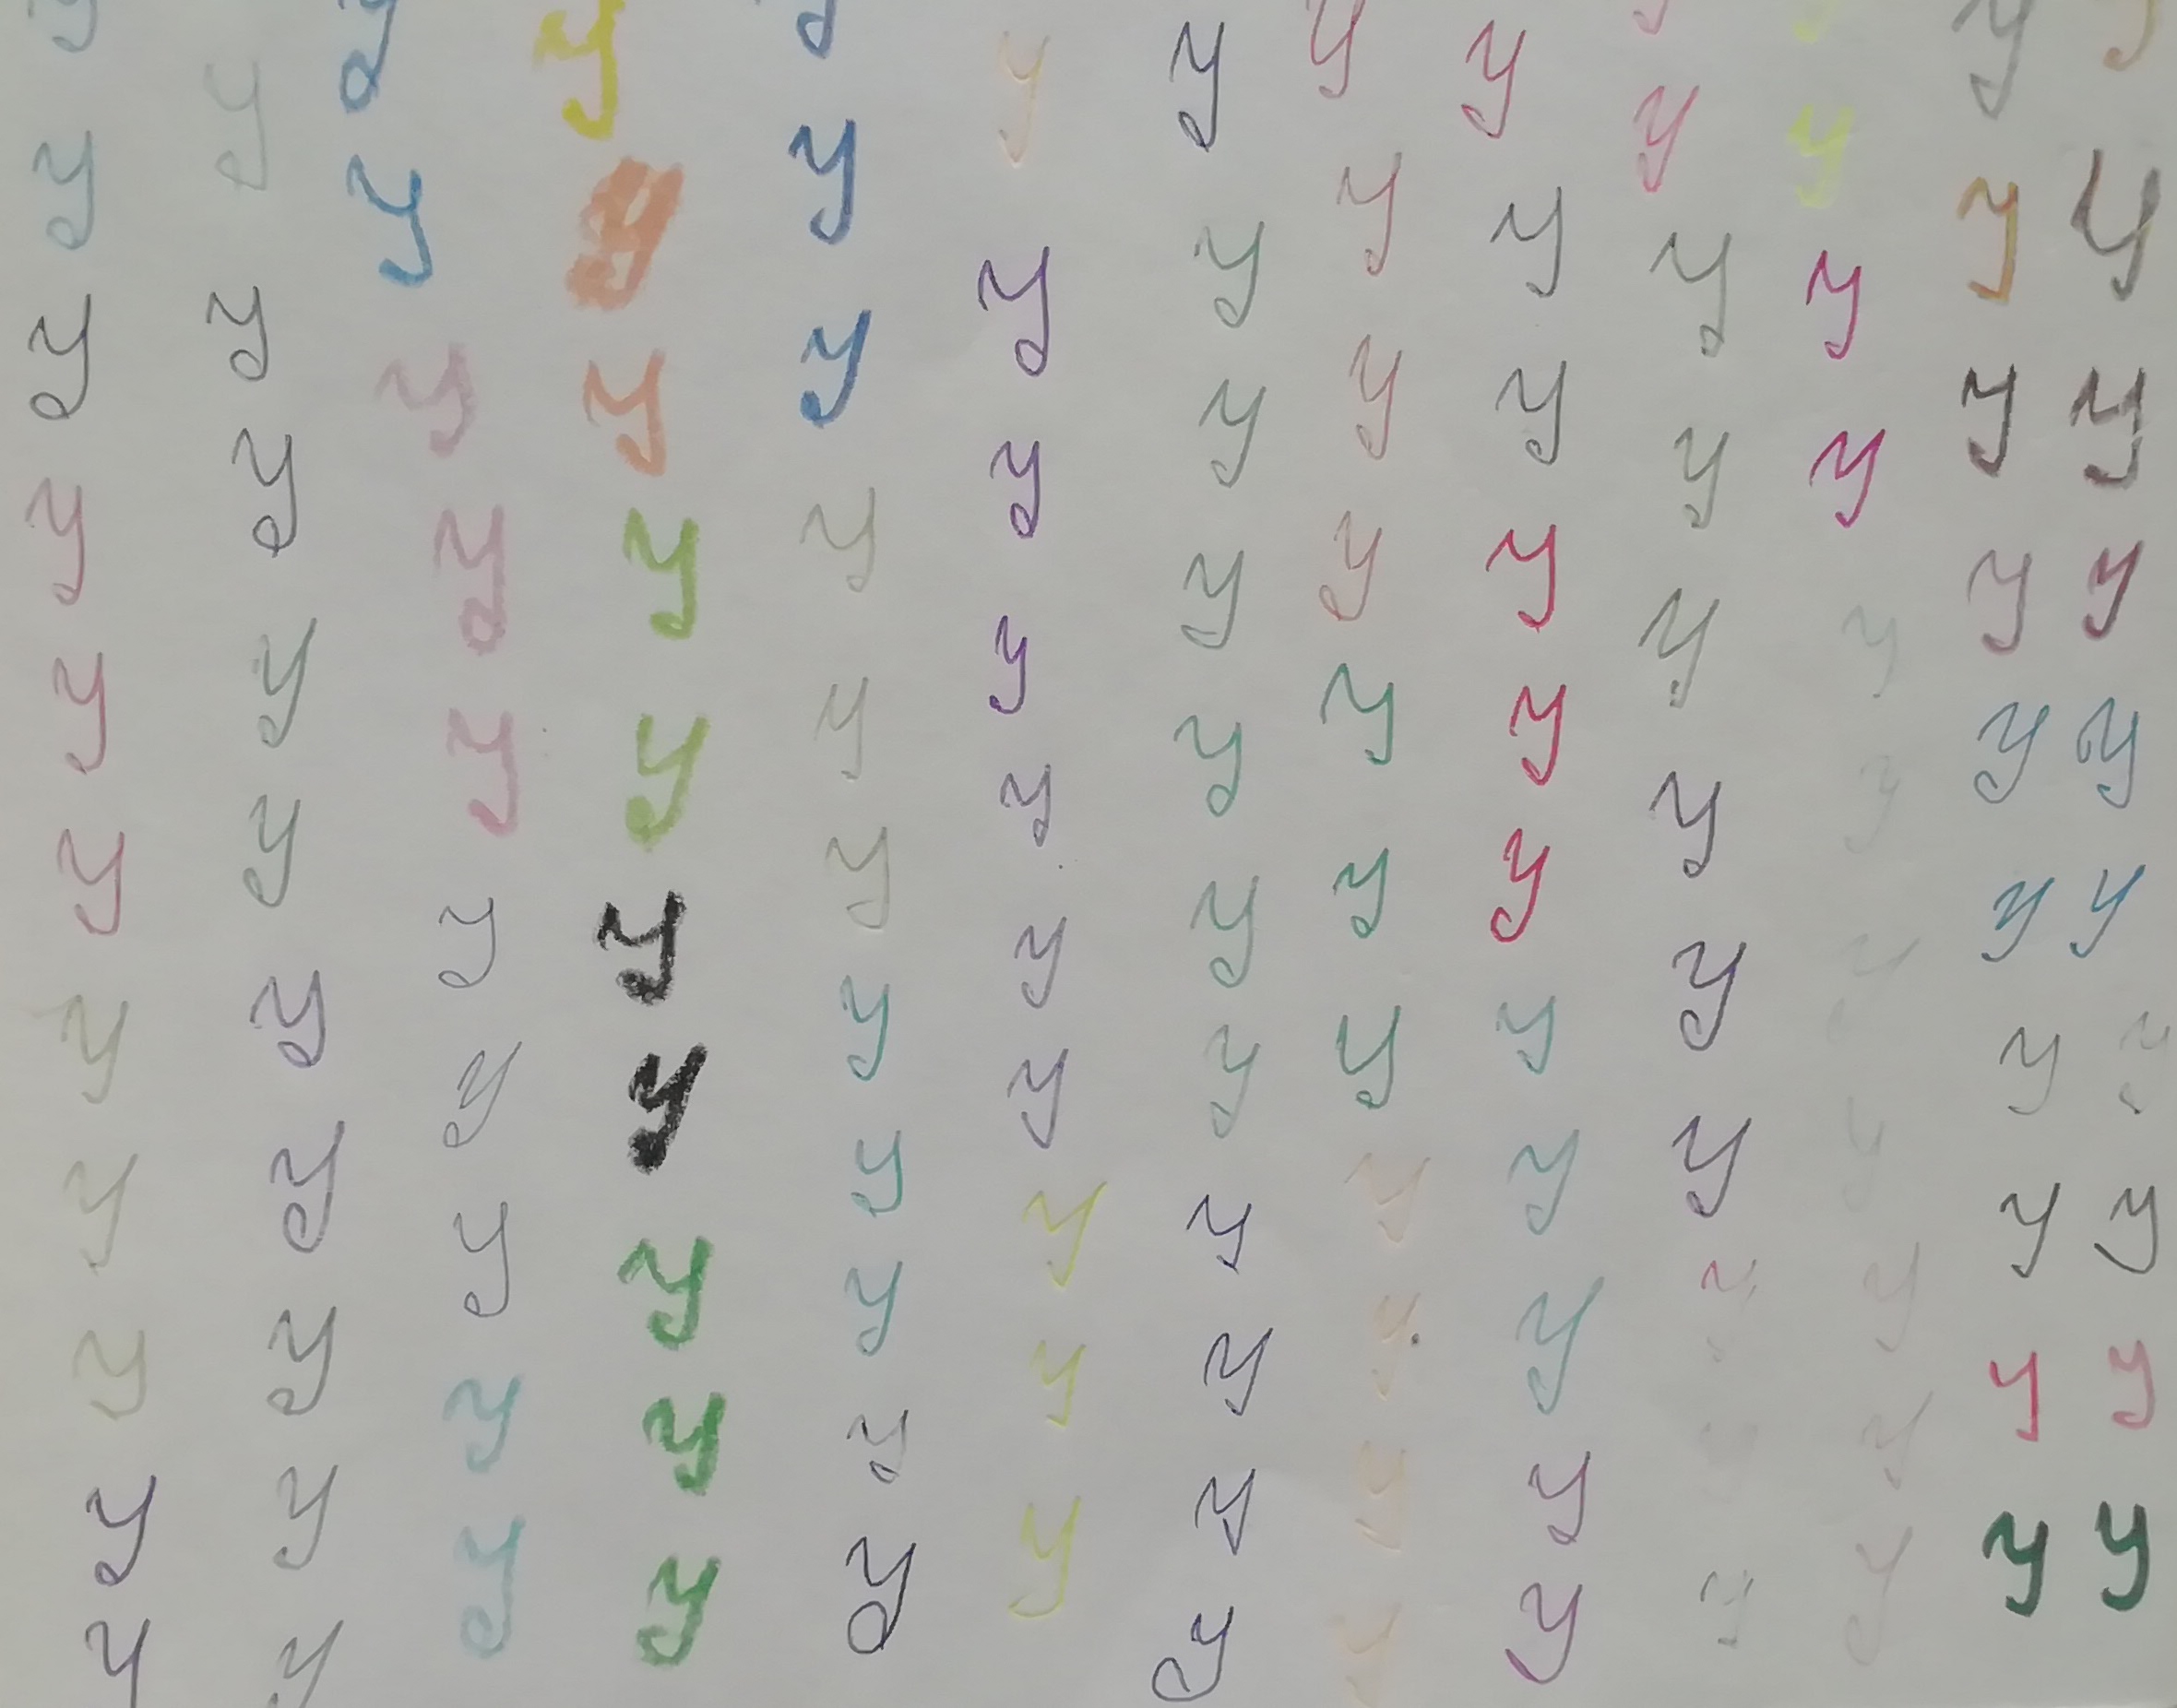 y y y y y y y y y y y y y
y y y y y y y y y y y y y
y y y y y y y y y y y y y
y y y y y y y y y y y y y
y y y y y y y y y y y y y
y y y y y y y y y y y y y
y y y y y y y y y y y y y
y y y y y y y y y y y y y
y y y y y y y y y y y y y
y y y y y y y y y y y y y
y y y y y y